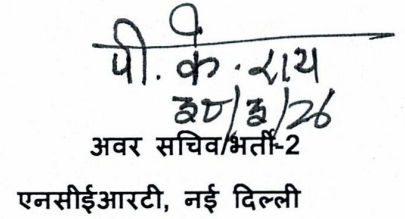 पी. के. राय
३०/३/26
अवर सचिव/भर्ती-2
एनसीईआरटी, नई दिल्ली